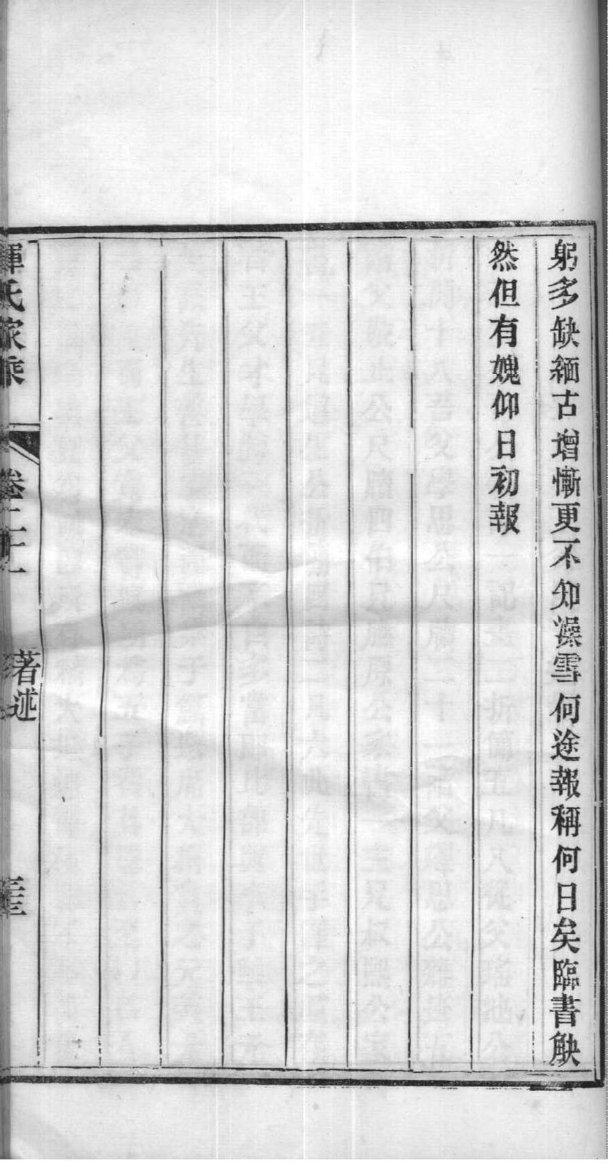 躬多缺緬古增慚更不知澡雪何途報稱何日矣臨書觖
然但有媿仰日初報
惲氏家乘
卷二十二
著述